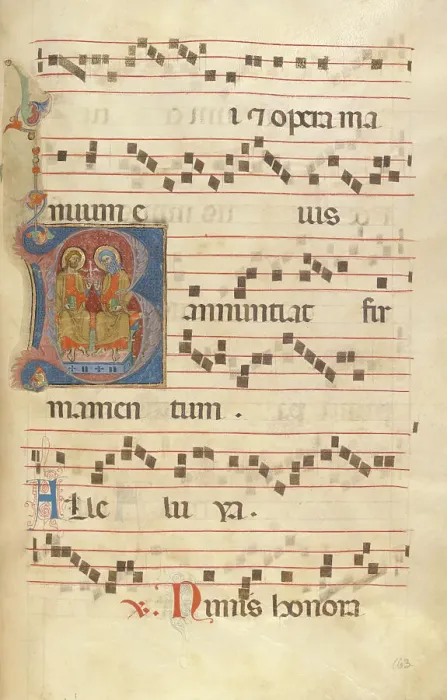 i ⁊ opera ma
nuum e ius
annuntiat fir
mamen tum .
Alle lu ya .
V. Nimis honora
163